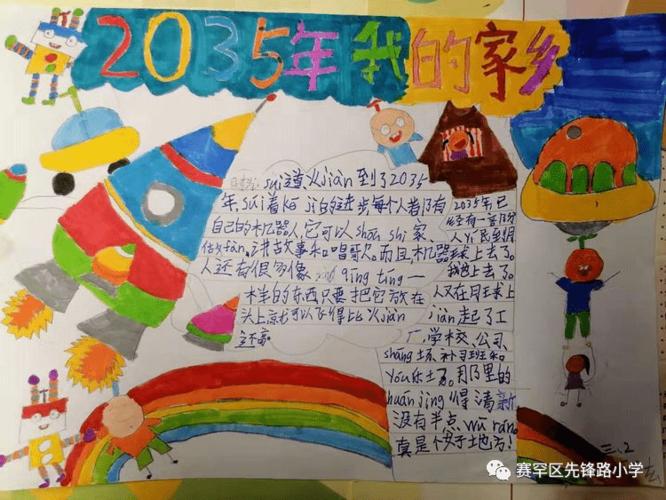 2035年我的家乡
sui道火jiàn到了2035
年,suí着kē jì的进步每个人者阝有
自己的机器人,它可以shōu shi家、
fàn、讲故事和唱歌。而且机器
人还有很多像 qīng tíng一
样的东西只要把它放在
头上就可以飞得比火jiàn
还高
2035年已
经有一部分
人 yí民到月
球上去了。
我也上去了。
人又在月球上
jiàn起了工
厂、学校、公司
shāng场、补习班和
yóu乐土。那里的
huánjìng得清新
没有半点 wū rǎn
真是个好地方!
三.2
赛罕区先锋路小学